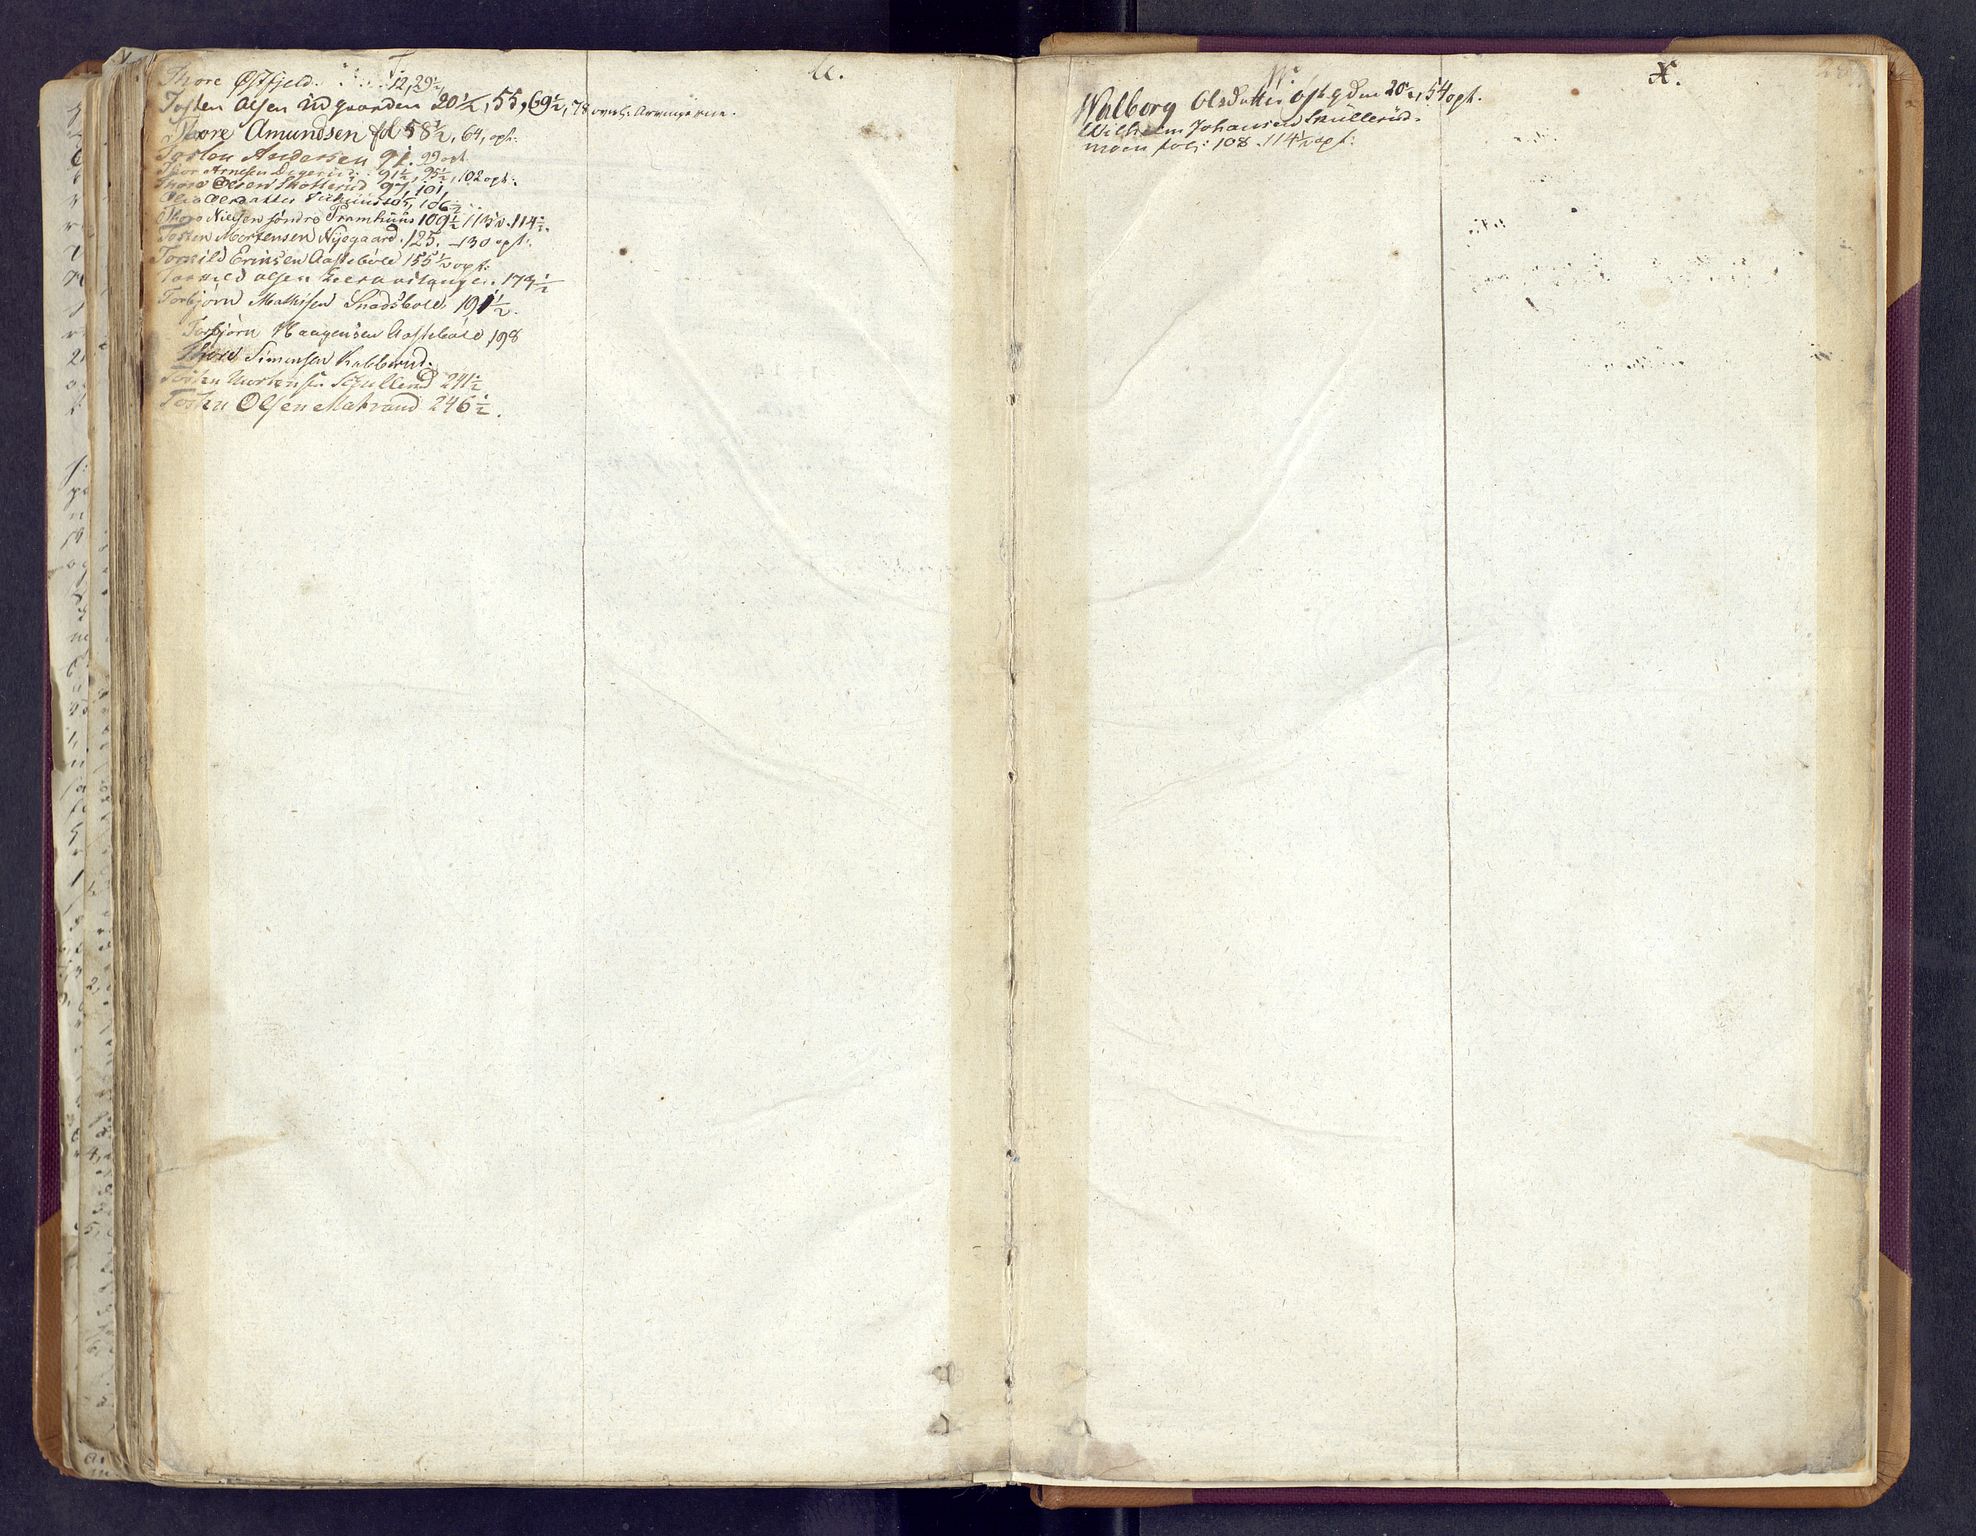 T.
Thore Østfjeld. 12, 29½,
Tosten Olsen Nidgaarden 20½, 55, 69½, 78
Thore Amundsen fol 58½, 64, opt:
Tosten Andersen 91. 99 opt
Thor Arnesen 91½, 95½, 102 opt:
Thore Olsen Skotterud 97, 101,
105, 106½
Thore Nielsen søndre Framhuus 109½ 114½.
Tosten Mortensen Nygaard. 125. 130 opt:
Torkild Erichsen Aastebøle 155½ opt:
Torkild Olsen 174½
Torbjørn Mathisen Snadsbøle, 191½.
Torbjørn Haagensen Aastebøle 198
Thore Simensen Kabberud.
Tosten Mortensen 241½
Tosten Olsen Matrand 246½.
U.
W.
Walborg Olsdatter 20½, 54 opt.
Wilhelm Johansen Skullerud-
moen fol: 108. 114½ opt:
X.